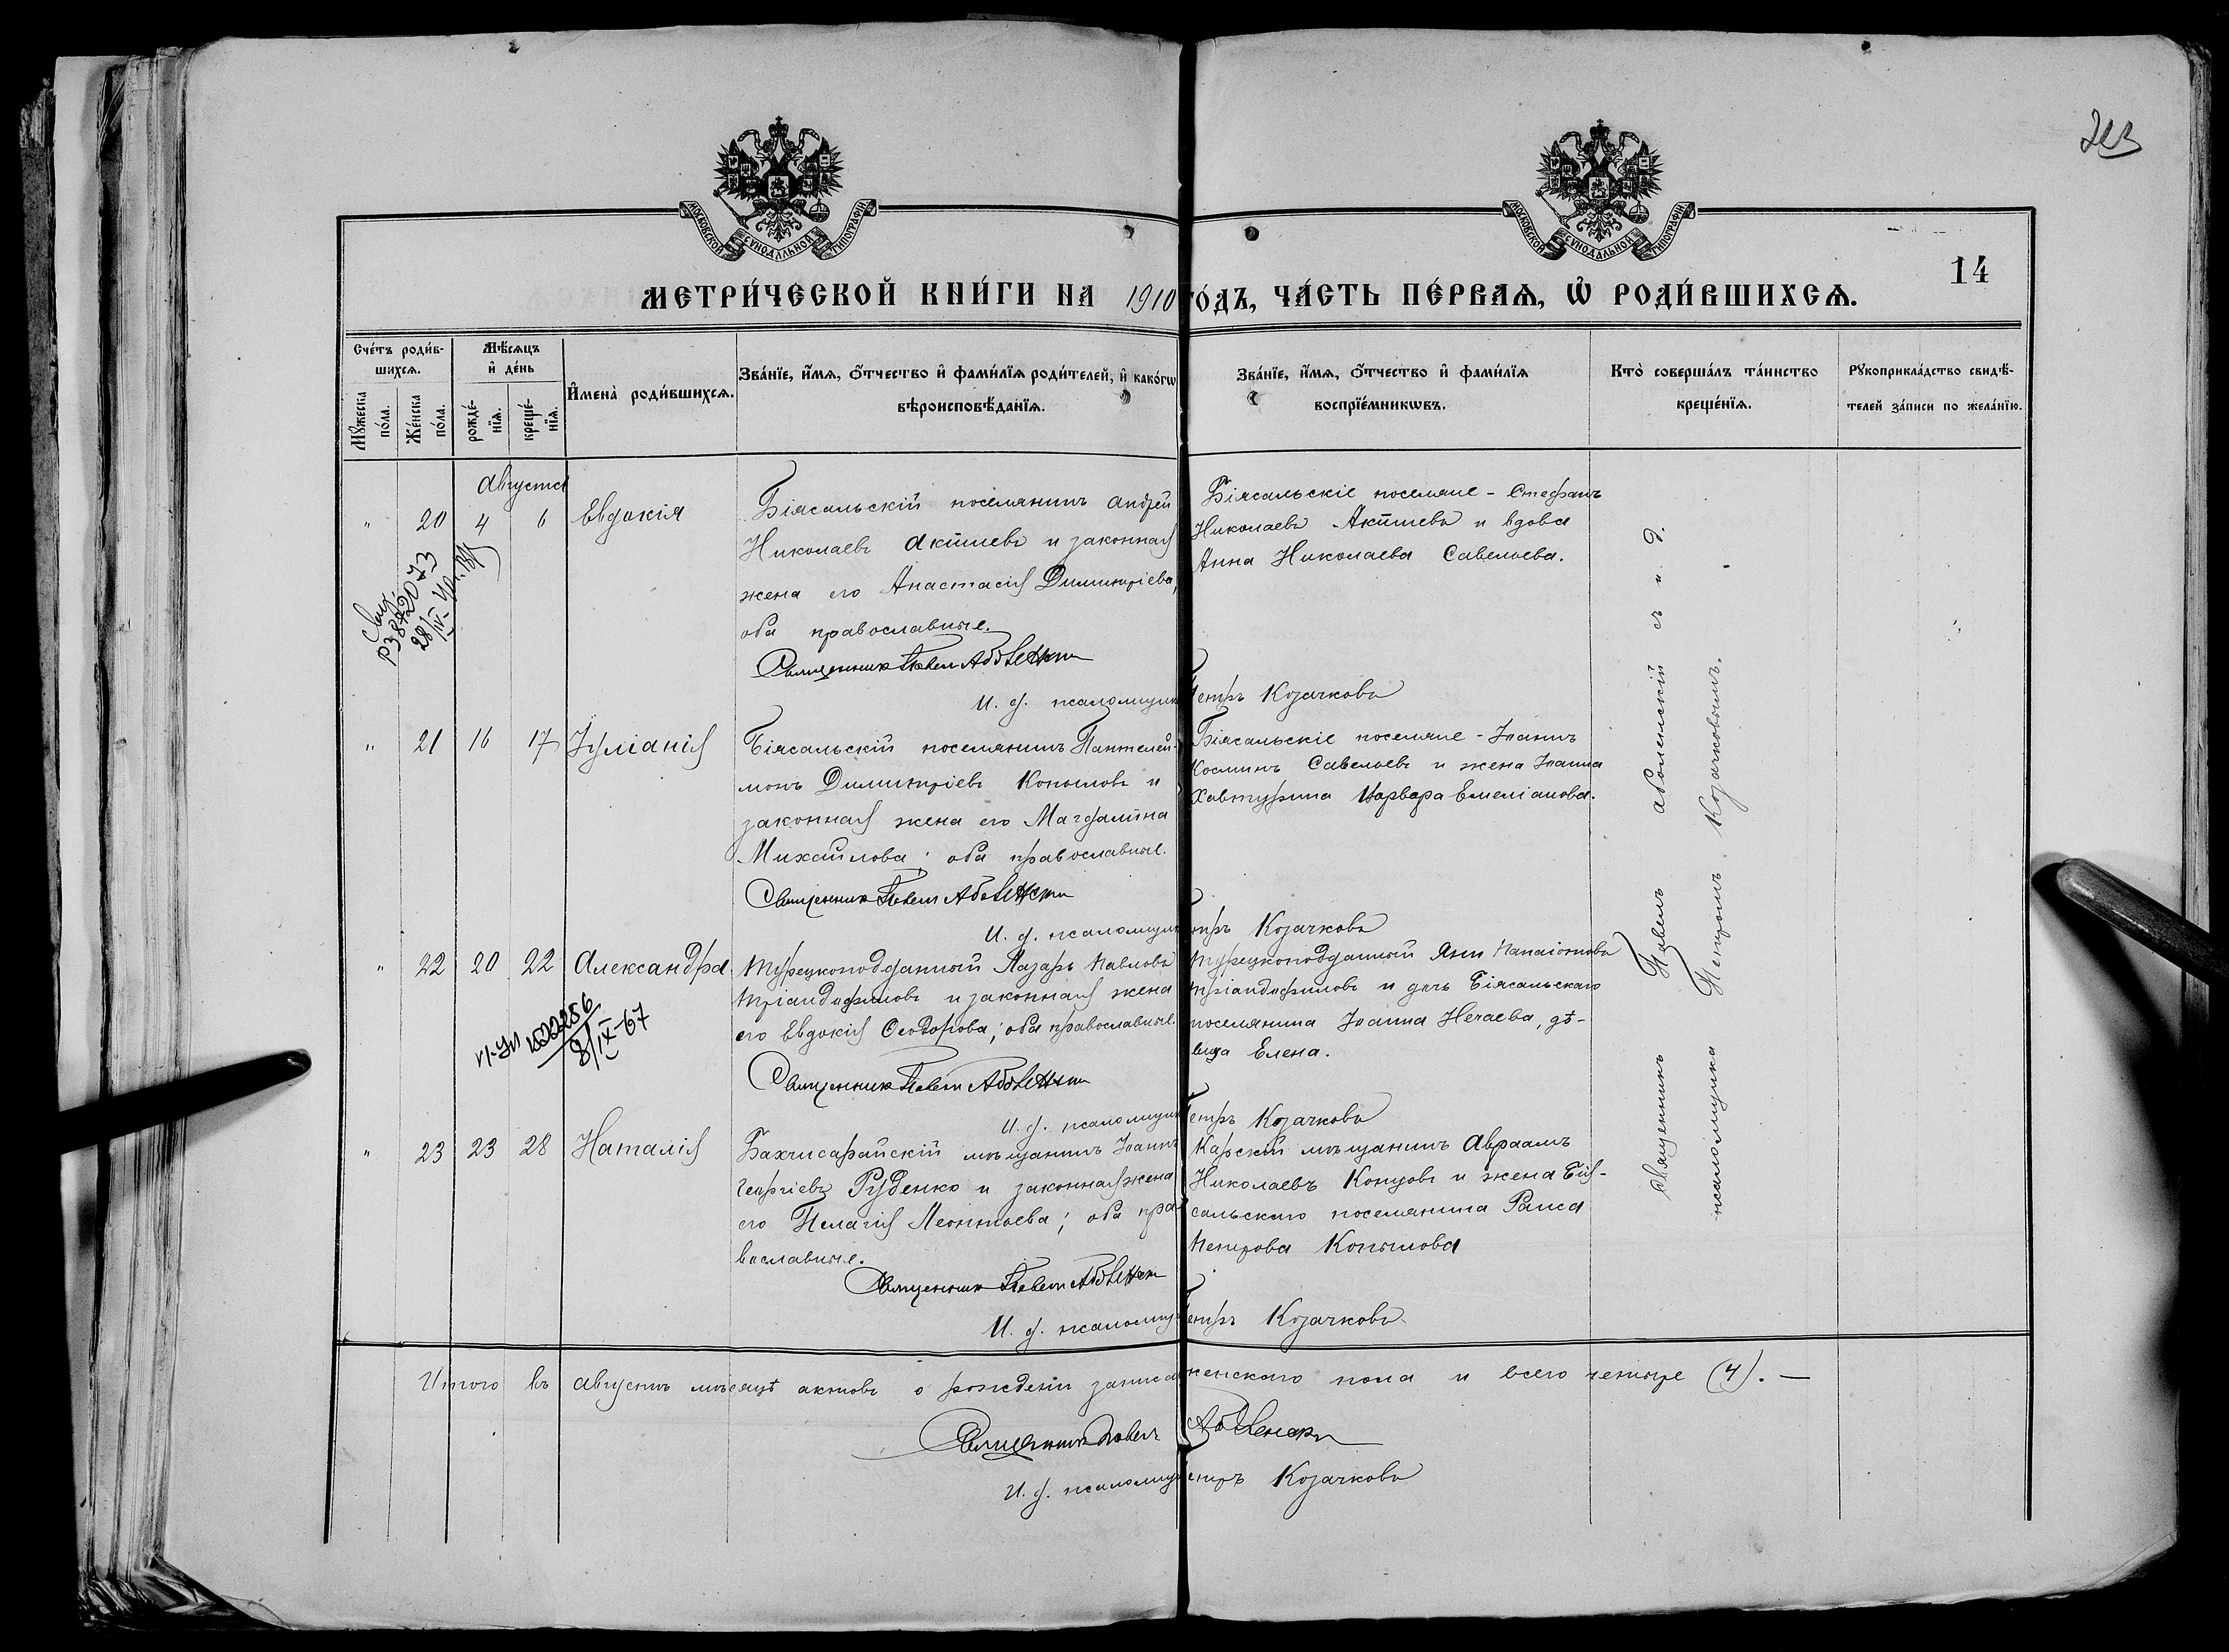 243
МОСКОВСКОЙ СѴНОДАЛЬНОЙ ТИПОГРАФІИ
МОСКОВСКОЙ СѴНОДАЛЬНОЙ ТИПОГРАФІИ
14
МЕТРИ́ЧЕСКОЙ КНИ́ГИ НА 1910 ГО́ДЪ, ЧА́СТЬ ПЕ́РВАѦ, Ѽ РОДИ́ВШИХСѦ.
Сче́тъ роди́в-
шихсѧ.
Мꙋжеска
по́ла.
Же́нска
по́ла.
Мѣ́сѧцъ
и҆ де́нь
рожде́-
нїѧ.
креще́-
нїѧ.
И҆мена̀ роди́вшихсѧ.
Зва́нїе, и҆́мѧ, ѻ҆́тчество и҆ фами́лїѧ роди́телей, и҆ како́гѡ
вѣроисповѣ́данїѧ.
Зва́нїе, и҆́мѧ, ѻ҆́тчество и҆ фами́лїѧ
воспрїе́мникѡвъ.
Кто̀ соверша́лъ та́инство
креще́нїѧ.
Рꙋкоприкла́дство свидѣ́-
телей за́писи по жела́нїю.
Августа
" 20 4 6 Евдокія
Біясальскій поселянинъ Андрей
Николаевъ Акишевъ и законная
жена его Анастасія Димитріева,
оба православные.
Священникъ Павелъ Аболенскій
И. д. псаломщика Петръ Козачковъ
Біясальскіе поселяне - Стефанъ
Николаевъ Акишевъ и вдова
Анна Николаева Савельева.
" 21 16 17 Іуліанія
Біясальскій поселянинъ Пантелей-
монъ Димитріевъ Копыловъ и
законная жена его Магдалина
Михайлова; оба православные.
Священникъ Павелъ Аболенскій
И. д. псаломщика Петръ Козачковъ
Біясальскіе поселяне - Іоаннъ
Косминъ Савельевъ и жена Іоанна
Хавтурина Варвара Емеліанова.
" 22 20 22 Александра.
Турецкоподданный Лазарь Павловъ
Тріандафиловъ и законная жена
его Евдокія Ѳеодорова; оба православные.
Священникъ Павелъ Аболенскій
И. д. псаломщика Петръ Козачковъ
Турецкоподданный Яни Панаіотовъ
Тріандафиловъ и дочь Біясальскаго
поселянина Іоанна Нечаева, дѣ-
вица Елена.
8/IX-67
" 23 23 28 Наталія
Бахчисарайскій мѣщанинъ Іоаннъ
Георгіевъ Руденко и законная жена
его Пелагія Леонтьева; оба пра-
вославные.
Священникъ Павелъ Аболенскій
И. д. псаломщика Петръ Козачковъ
Карскій мѣщанинъ Авраамъ
Николаевъ Концовъ и жена Бія-
сальскаго поселянина Раиса
Петрова Копылова
Священникъ Павелъ Аболенскій съ и. д.
псаломщика Петромъ Козачковымъ.
Итого въ августѣ мѣсяцѣ актовъ о рожденіи записано женскаго пола и всего четыре (4). —
Священникъ Павелъ Аболенскій
И. д. псаломщика Петръ Козачковъ